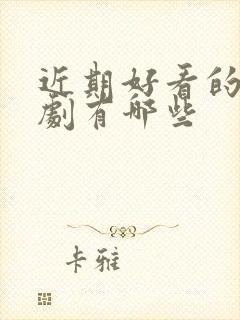 近期好看的
劇有哪些
卡雅